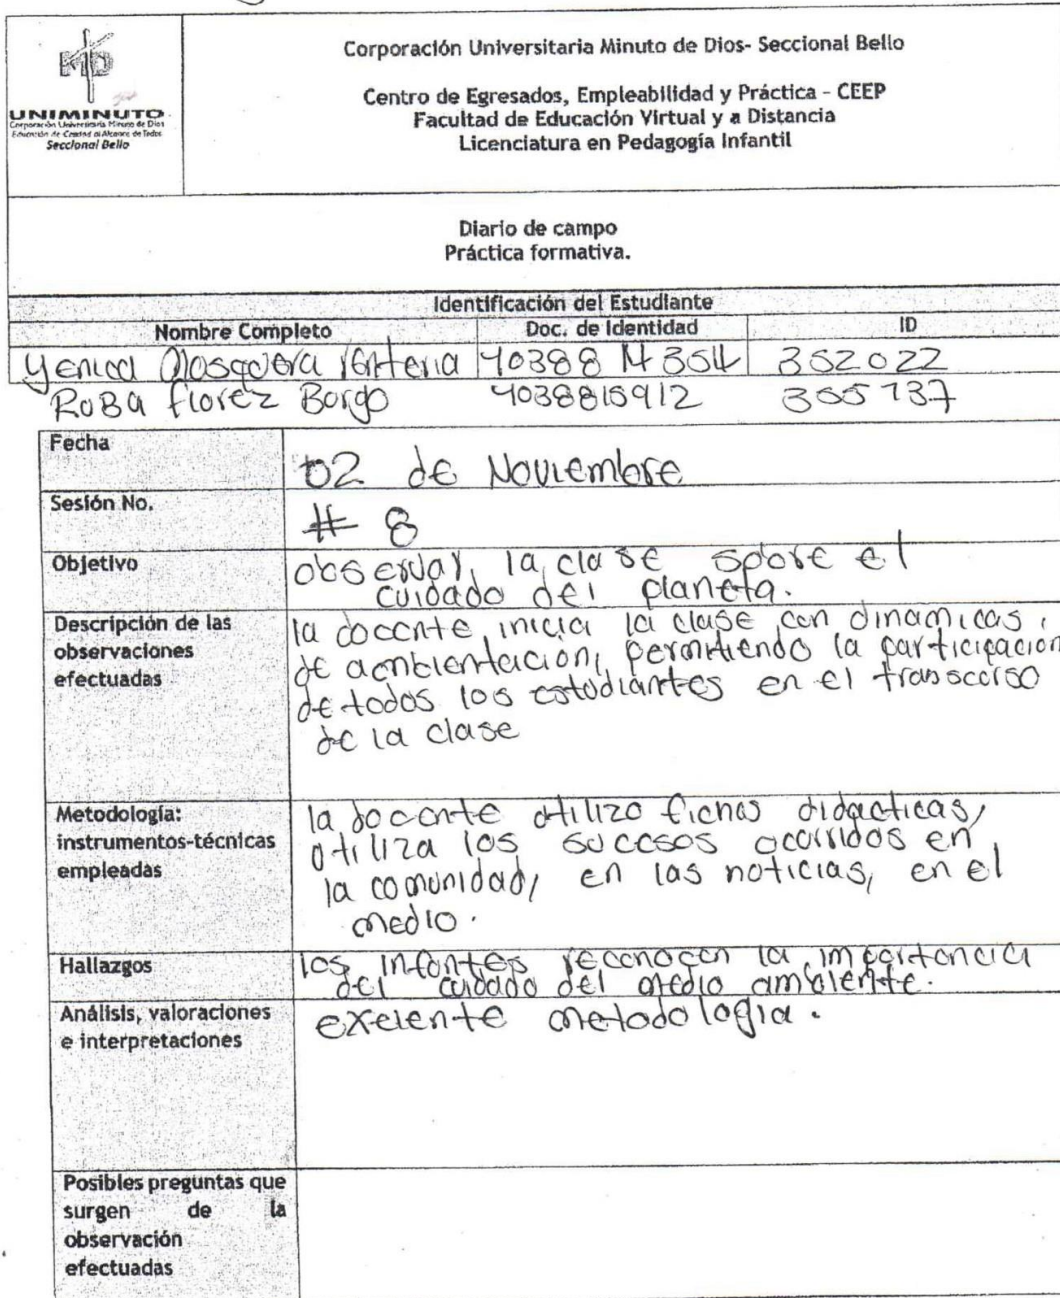 UNIMINUTO
Corporación Universitaria Minuto de Dios
Educación de Calidad al Alcance de Todos
Seccional Bello
Corporación Universitaria Minuto de Dios- Seccional Bello
Centro de Egresados, Empleabilidad y Práctica - CEEP
Facultad de Educación Virtual y a Distancia
Licenciatura en Pedagogía Infantil
Diario de campo
Práctica formativa.
Identificación del Estudiante
Nombre Completo Doc. de Identidad ID
Yenica Mosquera renteria 352022
RoBa florez Borgo 4038815912 355737
Fecha
02 de Noviembre
Sesión No.
# 8
Objetivo
observar, la clase sobre el
cuidado del planeta.
Descripción de las
observaciones
efectuadas
la docente, inicia la clase con dinamicas,
de ambientacion, permitiendo la participacion
de todos los estudiantes en el transcurso
de la clase
Metodología:
instrumentos-técnicas
empleadas
la docente utilizo fichas didacticas,
utiliza los sucesos ocurridos en
la comunidad, en las noticias, en el
medio.
Hallazgos
los infantes reconocen la importancia
del cuidado del medio ambiente.
Análisis, valoraciones
e interpretaciones
exelente metodologia.
Posibles preguntas que
surgen de la
observación
efectuadas